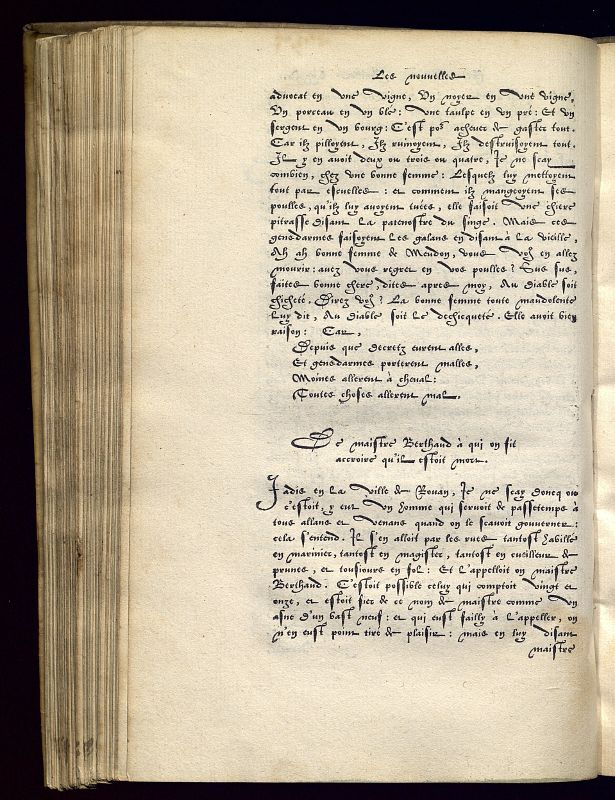 Les nouuelles
aduocat en vne vigne, Vn noyer en vne vigne,
Vn porceau en vn blé: vne taulpe en vn pré: Et vn
sergent en vn bourg: C'est pour acheuer de gaster tout.
Car ilz pilloyent, Ilz ruinoyent, Ilz destruisoyent tout.
Il y en auoit deux ou trois ou quatre, Ie ne scay
combien, chez vne bonne femme: Lesquelz luy mettoyent
tout par escuelles: et comment ilz mangeoyent ses
poulles, qu'ilz luy auoyent tuées, elle faisoit vne chiere
pitrasse disant La patenostre du singe. Mais ces
gensdarmes faisoyent les galans en disant à La vieille,
Ah ah bonne femme de Meudon, vous vous en allez
mourir: auez vous regret en voz poulles? Sus sus,
faites bonne chere, dites apres moy, Au diable soit
chicheté. Direz vous? La bonne femme toute maudolente
Luy dit, Au diable soit Le dechiqueté. Elle auoit bien
raison: Car,
Depuis que decretz eurent alles,
Et gensdarmes porterent malles,
Moines allerent à cheual:
Toutes choses allerent mal.
De maistre Berthaud à qui on fit
accroire qu'il estoit mort.
Iadis en La ville de Rouan, Ie ne scay doncq ou
c'estoit, y eut vn homme qui seruoit de passetemps à
tous allans et venans quand on le scauoit gouuerner:
cela s'entend. Il s'en alloit par les rues tantost habillé
en marinier, tantost en magister, tantost en cueilleur de
prunes, et tousiours en fol: Et l'appelloit on maistre
Berthaud. C'estoit possible celuy qui comptoit vingt et
onze, et estoit fier de ce nom de maistre comme vn
asne d'vn bast neuf: et qui eust failly à L'appeller, on
n'en eust point tiré de plaisir: mais en luy disant
maistre